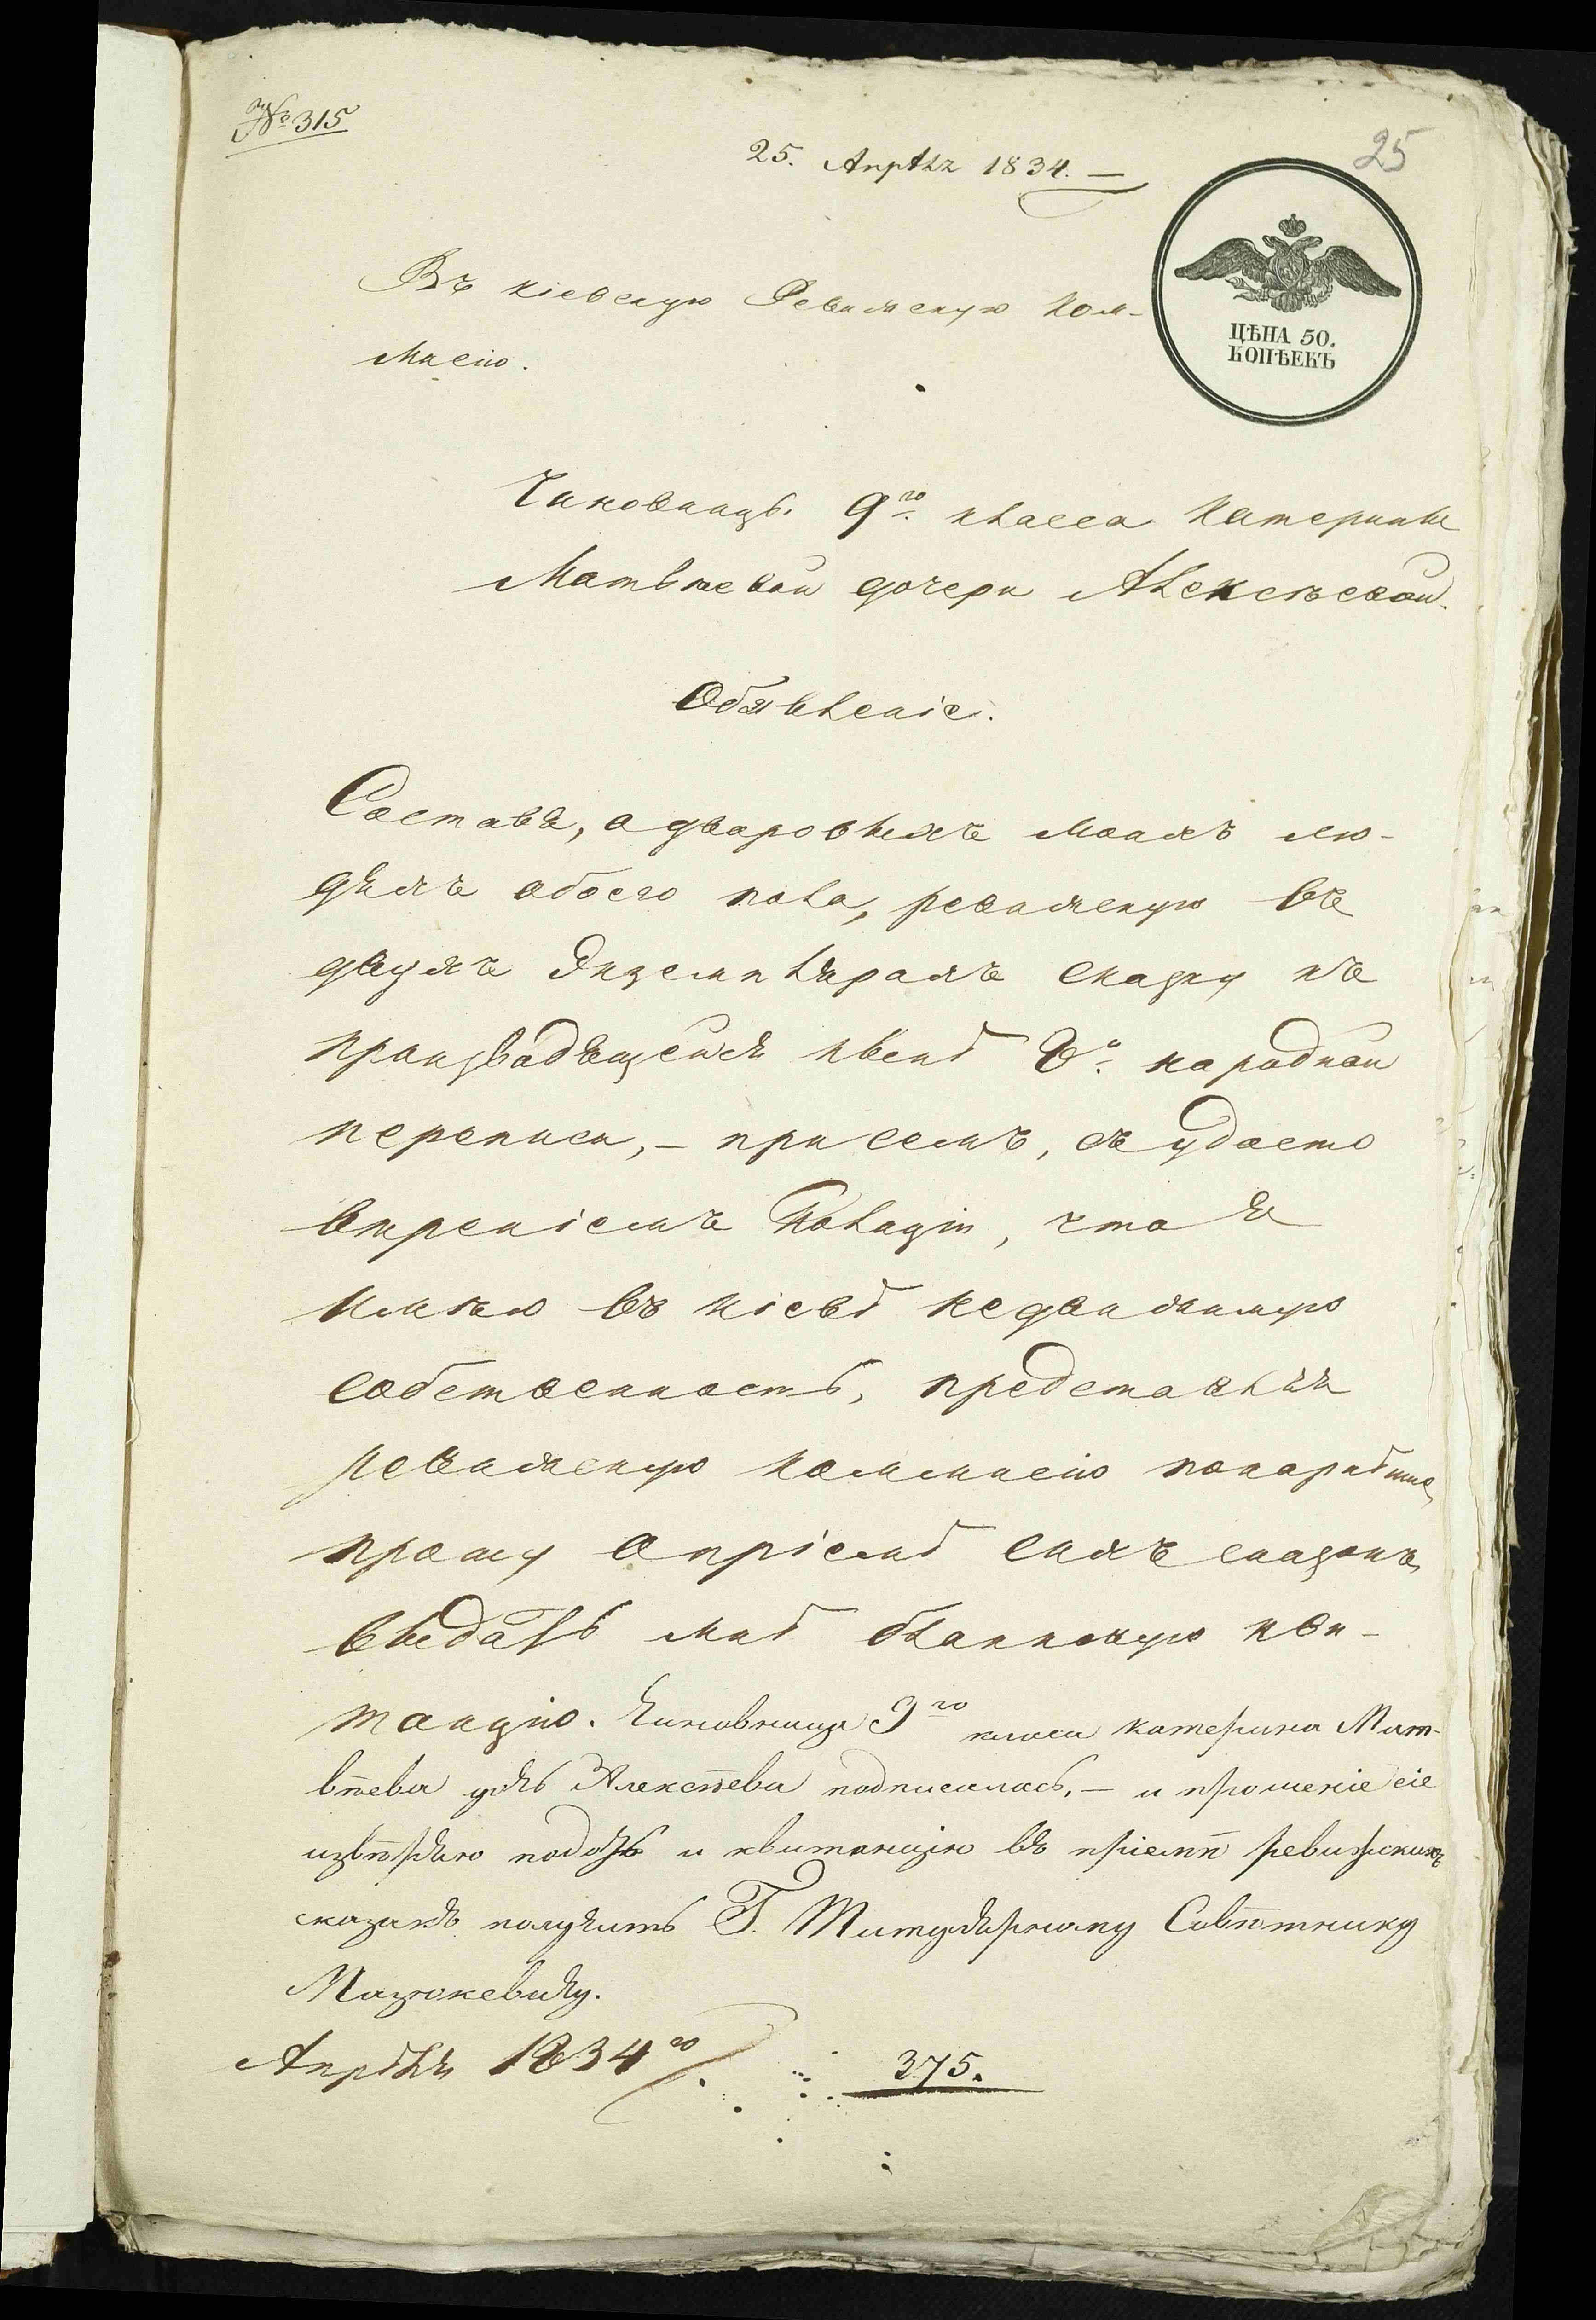 № 315
25
25. Апрѣля 1834. —
ЦѢНА 50.
КОПѢЕКЪ
Въ Кіевскую Ревижскую Ком-
мисію.
Чиновницы 9го класса Катерины
Матвѣевой дочери Алексѣевой.
Объявленіе.
Составя, о дворовыхъ моихъ лю-
дяхъ обоего пола, ревижскую въ
двухъ Экземплярахъ сказку къ
производящейся нынѣ 8й народной
переписи, — при семъ, съ удосто
вѣреніемъ Полиціи, что я
имѣю въ Кіевѣ недвижимую
собственность, представляя
ревижскую Коммисію покорнѣйше,
прошу о пріемѣ сихъ сказокъ
выдать мнѣ бланковую кви-
танцію. Чиновница 9го класа Катерина Мат-
вѣева дочь Алексѣева подписалась. — и прошеніе сіе
извѣряю подать и квитанцію въ пріемѣ ревижскихъ
сказакъ получить Г. Титулярному Совѣтнику
Мацюкевичу.
Апрѣля 1834го
375.